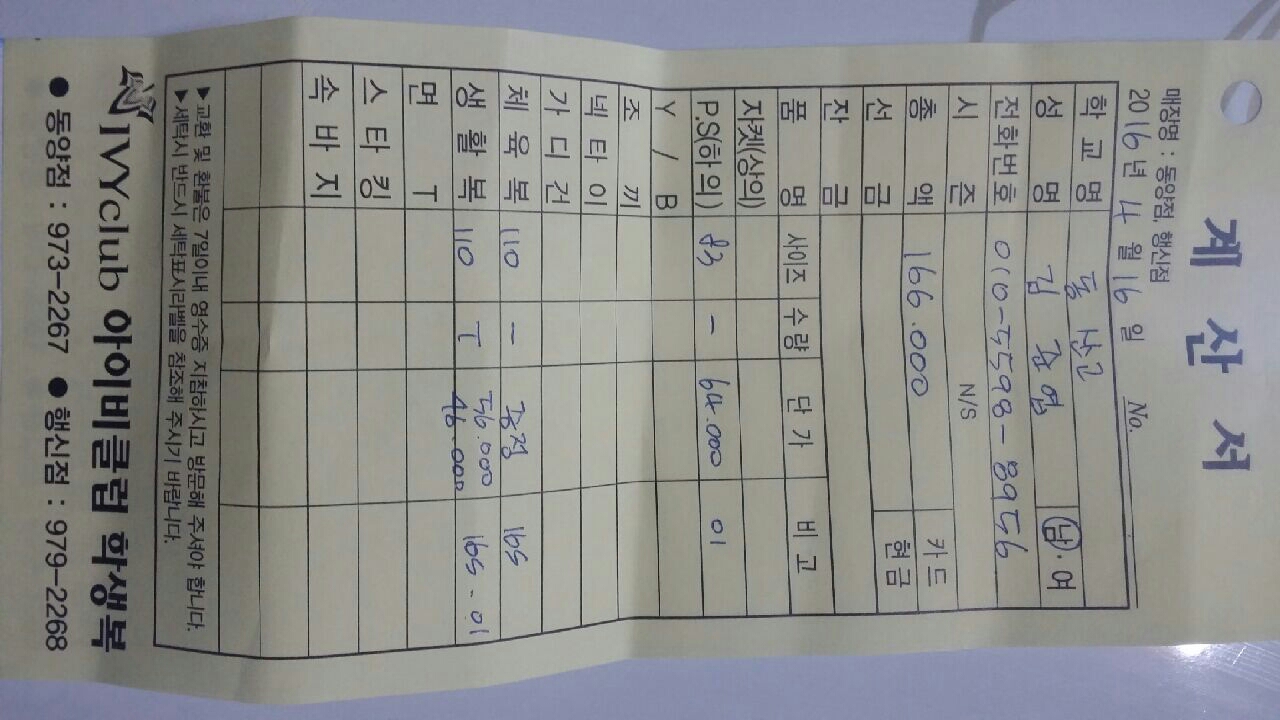 계 산 서
매장명 : 동양점, 행신점
2016년 4월 16일 No.
학 교 명
성 명 김 남 · 여
전화번호 010-5598-8956
시 즌 N/S
총 액 166.000 카드
선 금 현금
잔 금
품 명 사이즈 수량 단 가 비 고
자켓(상의)
P.S(하의) 83 - 64.000 01
Y / B
조 끼
넥 타 이
가 디 건
체 육 복 110 - 공정 56.000 16s
생 활 복 110 T 46.000 16s - 01
면 T
스 타 킹
속 바 지
▶교환 및 환불은 7일이내 영수증 지참하시고 방문해 주셔야 합니다.
▶세탁시 반드시 세탁표시라벨을 참조해 주시기 바랍니다.
IVYclub 아이비클럽 학생복
● 동양점 : 973-2267 ● 행신점 : 979-2268